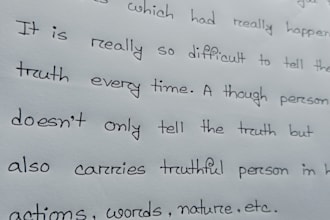 which had really happen
It is really so difficult to tell the
truth every time. A though person
doesn't only tell the truth but
also carries truthful person in h
actions, words, nature, etc.